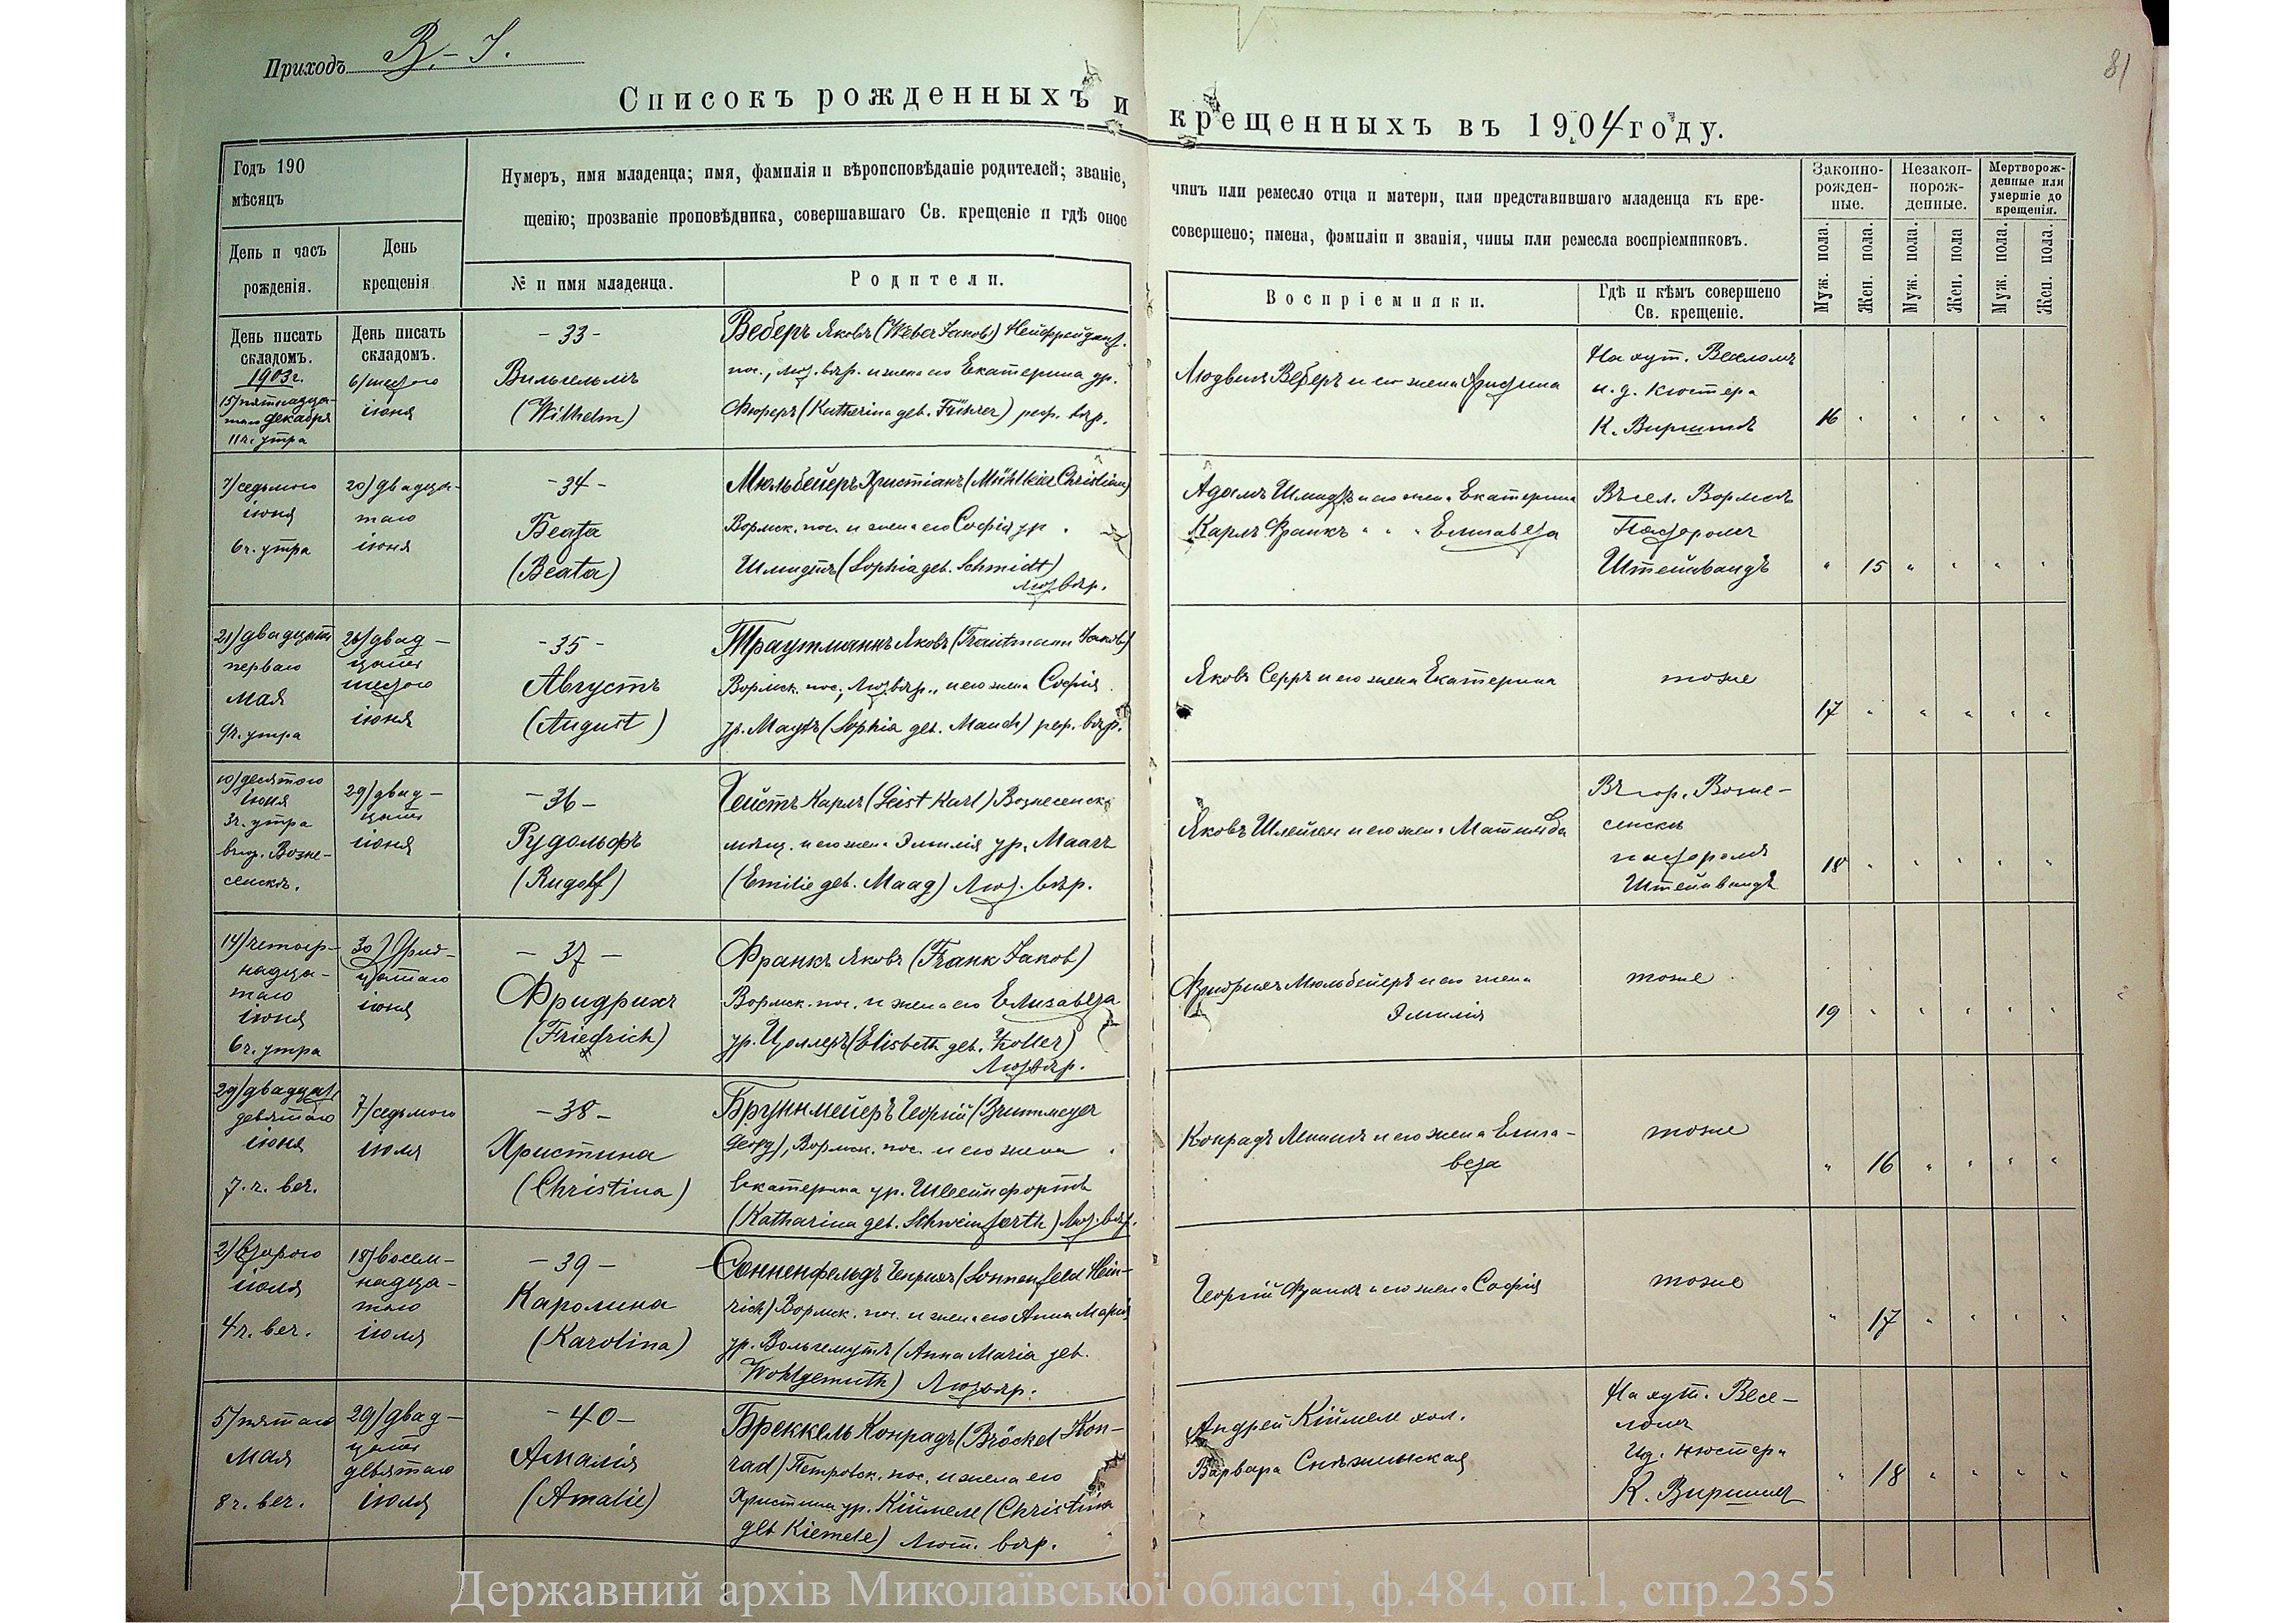 Приходъ В.-I.
81
Списокъ рожденныхъ и крещенныхъ въ 1904 году.
Годъ 190
мѣсяцъ
День и часъ
рожденія.
День
крещенія
Нумеръ, имя младенца; имя, фамилія и вѣроисповѣданіе родителей; званіе,
щенію; прозваніе проповѣдника, совершавшаго Св. крещеніе и гдѣ оное
№ и имя младенца.
Родители.
чинъ или ремесло отца и матери, или представившаго младенца къ кре-
совершено; имена, фамиліи и званія, чины или ремесла воспріемниковъ.
Воспріемники.
Гдѣ и кѣмъ совершено
Св. крещеніе.
Законно-
рожден-
ные.
Незакон-
норож-
денные.
Мертворож-
денные или
умершіе до
крещенія.
Муж. пола.
Жен. пола.
Муж. пола.
Жен. пола
Муж. пола.
Жен. пола.
День писать
складомъ.
1903 г.
15/пятнадца-
таго декабря
11 ч. утра
День писать
складомъ.
6/шестого
іюня
- 33 -
Вильгельмъ
(Wilhelm)
Веберъ Яковъ (Weber Jakob)
пос., лют. вѣр. и жена его Екатерина ур.
Фюреръ (Katherina geb. Führer) реф. вѣр.
Людвигъ Веберъ и его жена
На хут. Веселомъ
и. д. кюстера
К. Виршинъ
16
7/седьмого
іюня
6 ч. утра
20/двадца-
таго
іюня
- 34 -
Беата
(Beata)
Мюльбейеръ Христіанъ (Mühlbeier Christian)
Вормск. пос. и жена его Софія ур.
Шмидтъ (Sophia geb. Schmidt)
лют. вѣр.
Адамъ Шмидтъ и его жена Екатерина
Карлъ Франкъ " " " Елисавета
Въ сел. Вормсъ
Пасторомъ
Штейнвандъ
15
21/двадцать
перваго
мая
9 ч. утра
26/двад-
цать
шестого
іюня
- 35 -
Августъ
(August)
Траутманнъ Яковъ (Trautmann Jakob)
Вормск. пос., лют. вѣр., и его жена Софія
ур. Маухъ (Sophia geb. Mauch) реф. вѣр.
Яковъ Серръ и его жена Екатерина
тоже
17
10/десятого
іюня
3 ч. утра
въ г. Возне-
сенскѣ.
29/двад-
цать
іюня
- 36 -
Рудольфъ
(Rudolf)
Гейстъ Карлъ (Geist Karl) Вознесенск.
мѣщ. и его жена Эмилія ур. Маагъ
(Emilie geb. Maag) Лют. вѣр.
Яковъ Шлейгеи и его жена Матильда
Въ гор. Возне-
сенскѣ
пасторомъ
Штейнвандъ
18
14/четыр-
надца-
таго
іюня
6 ч. утра
30/трид-
цатаго
іюня
- 37 -
Фридрихъ
(Friedrich)
Франкъ Яковъ (Frank Jakob)
Вормск. пос. и жена его Елизавета
ур. Цоллеръ (Elisbeth geb. Zoller)
Лют. вѣр.
Фридрихъ Мюльбейеръ и его жена
Эмилія
тоже
19
29/двадцать
девятаго
іюня
7 ч. веч.
7/седьмого
іюля
- 38 -
Христина
(Christina)
Бруннмейеръ Георгій (Brunnmeyer
Georg), Вормск. пос. и его жена
Екатерина ур. Швейнфортъ
(Katharina geb. Schweinforth) Лют. вѣр.
Конрадъ и его жена Елиса-
вета
тоже
16
2/второго
іюля
4 ч. веч.
18/восем-
надца-
таго
іюля
- 39 -
Каролина
(Karolina)
Сонненфельдъ Генрихъ (Sonnenfeld Hein-
rich) Вормск. пос. и жена его Анна Марія
ур. Вольгемутъ (Anna Maria geb.
Wohlgemuth) Лют. вѣр.
Георгій Франкъ и его жена Софія
тоже
17
5/пятаго
мая
8 ч. веч.
29/двад-
цать
девятаго
іюля
- 40 -
Амалія
(Amalie)
Бреккель Конрадъ (Bröckel Kon-
rad) Петровск. пос. и жена его
Христина ур. Кіймеле (Christina
geb Kiemele) Лют. вѣр.
Андрей Кіймеле хол.
Варвара Снѣжинская
На хут. Весе-
ломъ
И. д. кюстера
К. Виршинъ
18
Державний архів Миколаївської області, ф.484, оп.1, спр.2355